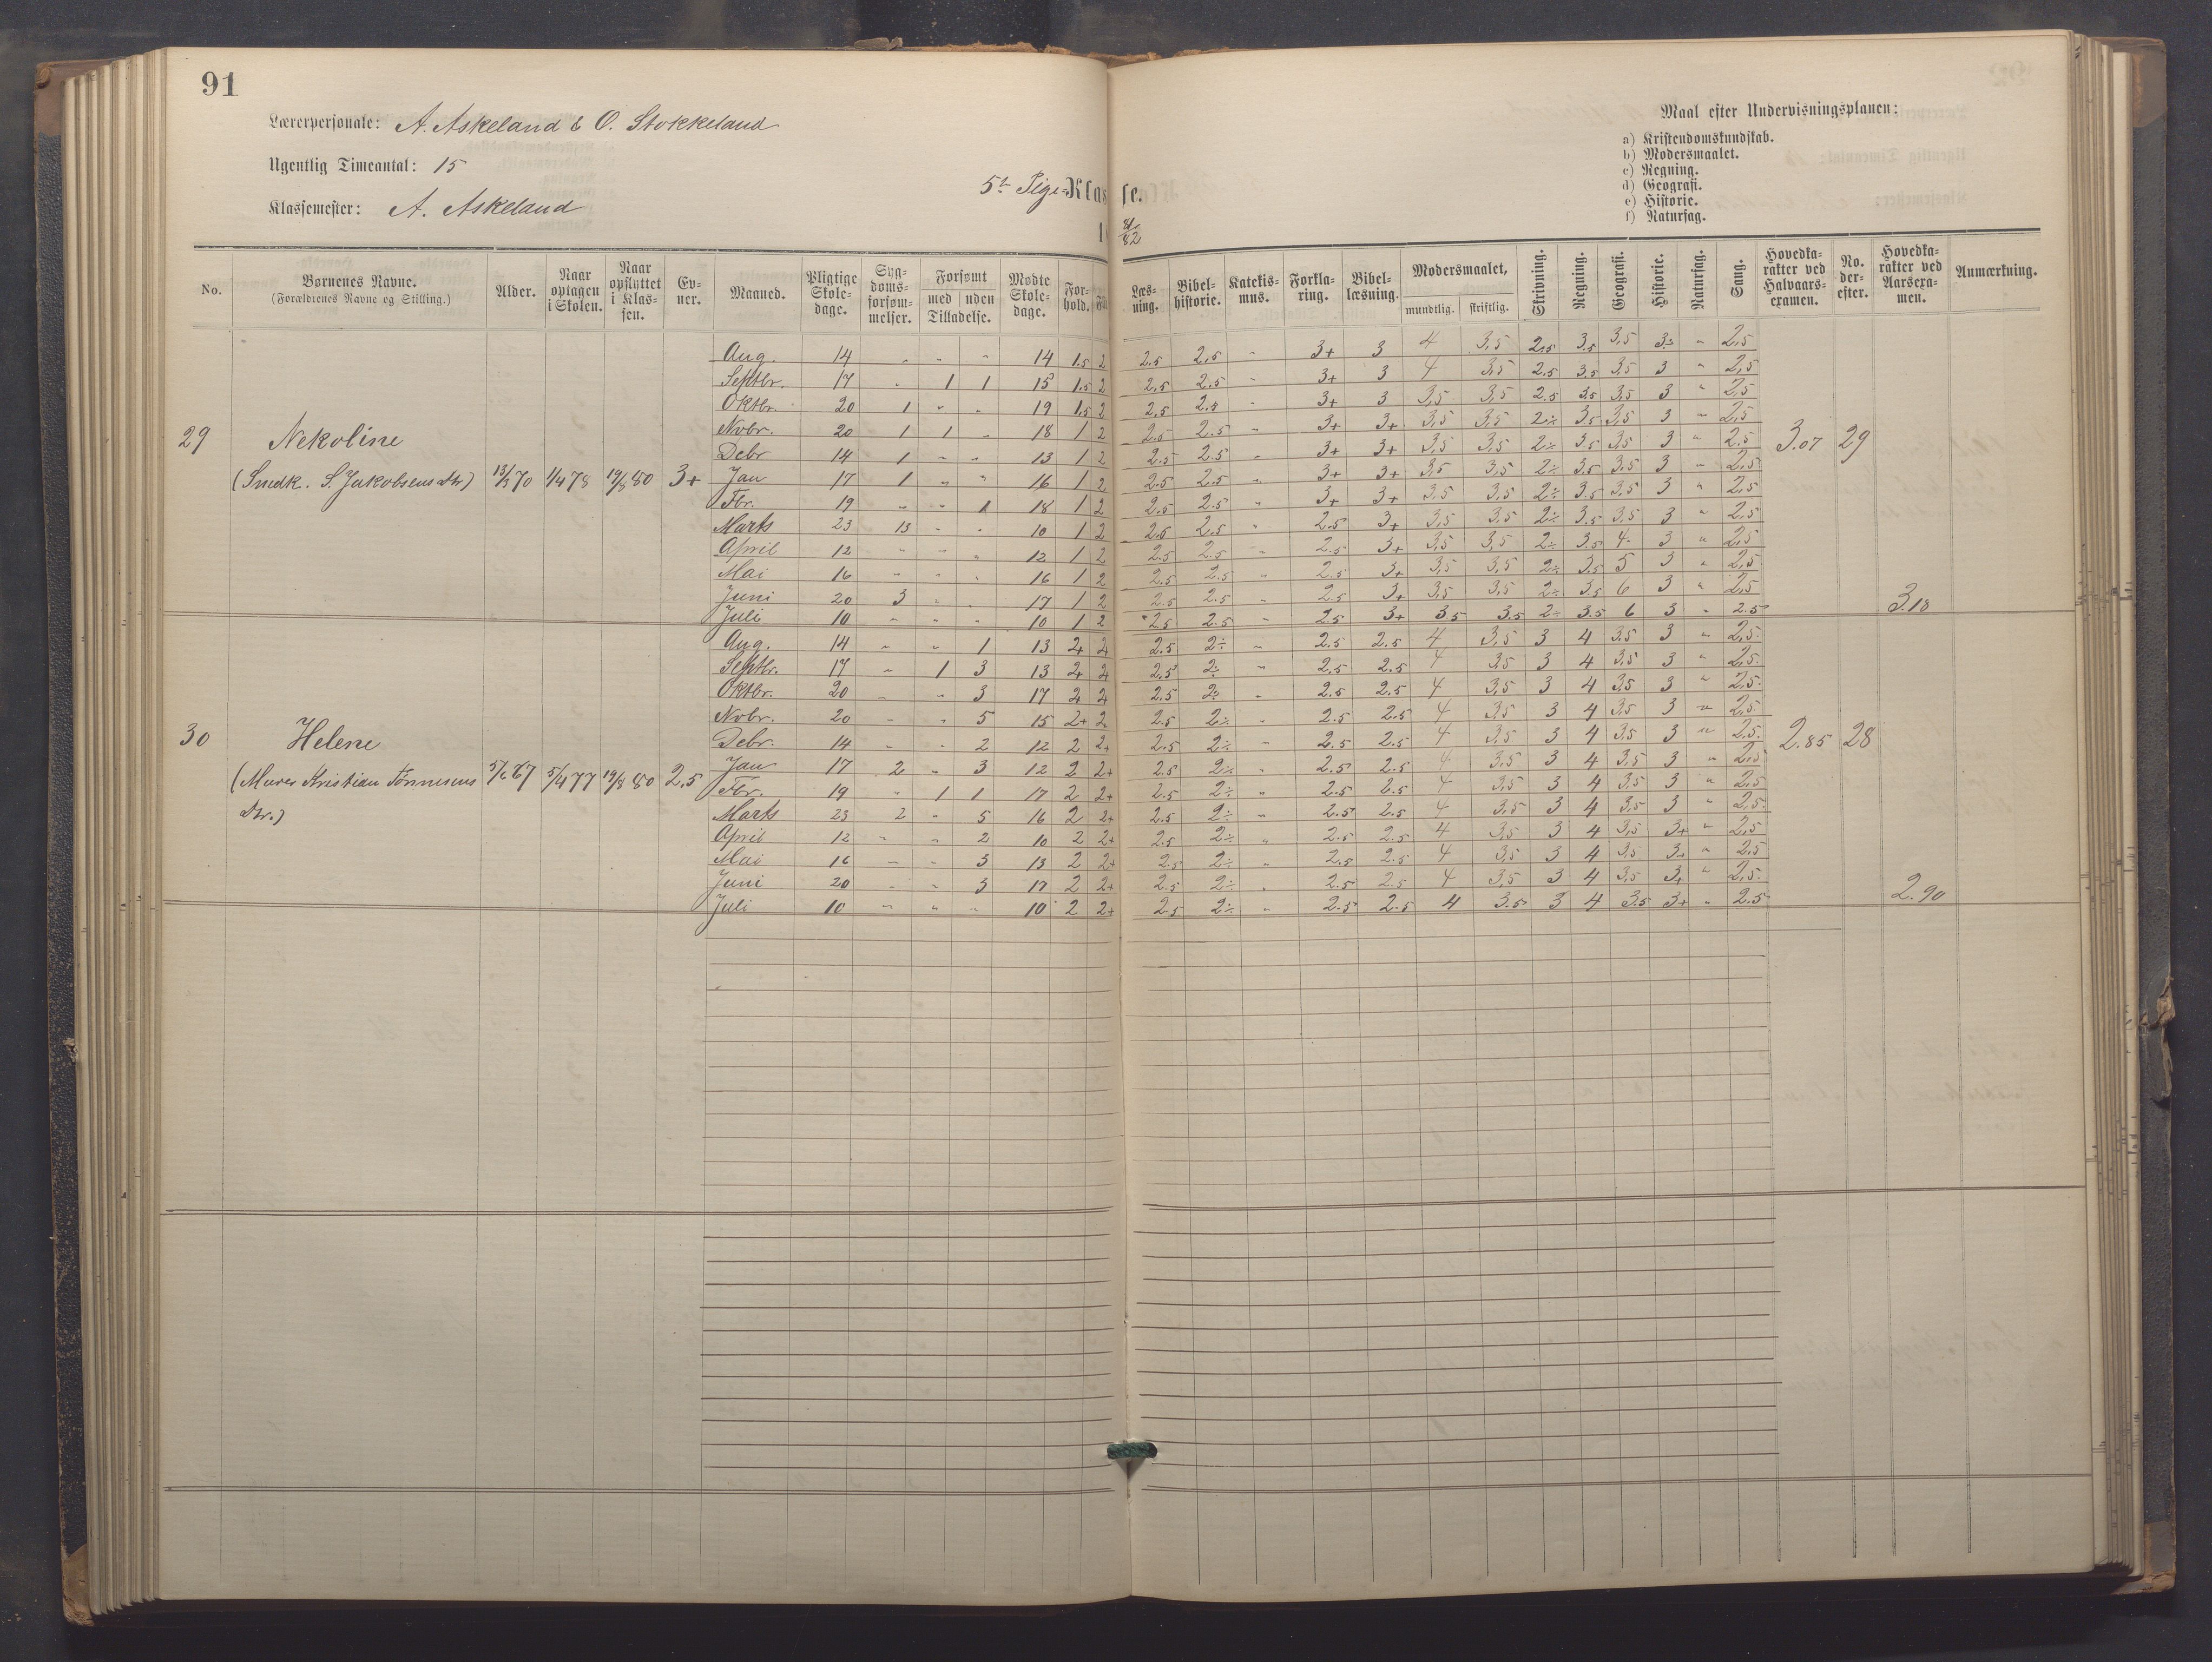 91
Lærerpersonale: A. Askeland & O. Stokkeland
Ugentlig Timeantal: 15
Klassemester: A. Askeland
5te Pige-Klasse.
81/82
Maal efter Undervisningsplanen:
a) Kristendomskundskab.
b) Modersmaalet.
c) Regning.
d) Geografi.
e) Historie.
f) Naturfag.
No. Børnenes Navne. (Forældrenes Navne og Stilling.) Alder. Naar optagen i Skolen. Naar opflyttet i Klassen. Evner. Maaned. Pligtige Skoledage. Sygdomsforsømmelser. Forsømt med uden Tilladelse. Mødte Skoledage. Forhold. Læsning. Bibelhistorie. Katekismus. Forklaring. Bibellæsning. Modersmaalet, mundtlig. skriftlig. Skrivning. Regning. Geografi. Historie. Naturfag. Sang. Hovedkarakter ved Halvaarsexamen. No. derefter. Hovedkarakter ved Aarsexamen. Anmærkning.
Aug. 14 " " " 14 1.5 2 2.5 2.5 " 3+ 3 4 3,5 2.5 3.5 3,5 3÷ " 2,5
Septbr. 17 " 1 1 15 1.5 2 2.5 2.5 " 3+ 3 4 3,5 2.5 3.5 3,5 3 " 2,5
Oktbr. 20 1 " " 19 1.5 2 2.5 2.5 " 3+ 3 3,5 3,5 2.5 3.5 3,5 3 " 2,5
Nobr. 20 1 1 " 18 1 2 2.5 2.5 " 3+ 3+ 3,5 3,5 2÷ 3.5 3,5 3 " 2,5
29 Nekoline
Debr 14 1 " " 13 1 2 2.5 2.5 " 3+ 3+ 3,5 3,5 2÷ 3.5 3,5 3 " 2.5 3.07 29
(Snedk. S. Jakobsens Dtr) 13/3 70 1/4 78 19/8 80 3+ Jan 17 1 " " 16 1 2 2.5 2.5 " 3+ 3+ 3,5 3,5 2÷ 3.5 3,5 3 " 2,5
Fbr. 19 " " 1 18 1 2 2.5 2.5 " 3+ 3+ 3,5 3,5 2÷ 3.5 3,5 3 " 2,5
Marts 23 13 " " 10 1 2 2.5 2.5 " 2.5 3+ 3,5 3,5 2÷ 3.5 3,5 3 " 2,5
April 12 " " " 12 1 2 2.5 2.5 " 2.5 3+ 3,5 3,5 2÷ 3.5 4 3 " 2,5
Mai 16 " " " 16 1 2 2.5 2.5 " 2.5 3+ 3,5 3,5 2÷ 3.5 5 3 " 2,5
Juni 20 3 " " 17 1 2 2.5 2.5 " 2.5 3+ 3,5 3,5 2÷ 3.5 6 3 " 2,5
Juli 10 " " " 10 1 2 2.5 2.5 " 2.5 3+ 3.5 3.5 2÷ 3.5 6 3 " 2.5 3.18
Aug. 14 " " 1 13 2+ 2 2.5 2÷ " 2.5 2.5 4 3,5 3 4 3,5 3 " 2,5
Septbr. 17 " 1 3 13 2 2 2.5 2÷ " 2.5 2.5 4 3,5 3 4 3,5 3 " 2,5
Oktbr. 20 " " 3 17 2 2 2.5 2÷ " 2.5 2.5 4 3,5 3 4 3,5 3 " 2,5
Nobr. 20 " " 5 15 2+ 2 2.5 2÷ " 2.5 2.5 4 3,5 3 4 3,5 3 " 2,5
30 Helene
Debr. 14 " " 2 12 2 2+ 2.5 2÷ " 2.5 2.5 4 3,5 3 4 3,5 3 " 2,5 2.85 28
(Murer Kristian Tønnesens Dtr.) 5/6 67 5/4 77 19/8 80 2,5 Jan 17 2 " 3 12 2 2+ 2.5 2÷ " 2.5 2.5 4 3,5 3 4 3,5 3 " 2,5
Fbr. 19 " 1 1 17 2 2+ 2.5 2÷ " 2.5 2.5 4 3,5 3 4 3,5 3 " 2,5
Marts 23 2 " 5 16 2 2+ 2.5 2÷ " 2.5 2.5 4 3,5 3 4 3,5 3 " 2,5
April 12 " " 2 10 2 2+ 2.5 2÷ " 2.5 2.5 4 3,5 3 4 3,5 3+ " 2,5
Mai 16 " " 3 13 2 2+ 2.5 2÷ " 2.5 2.5 4 3,5 3 4 3,5 3+ " 2,5
Juni 20 " " 3 17 2 2+ 2.5 2÷ " 2.5 2.5 4 3,5 3 4 3,5 3+ " 2,5
Juli 10 " " " 10 2 2+ 2.5 2÷ " 2.5 2.5 4 3.5 3 4 3.5 3+ " 2.5 2.90